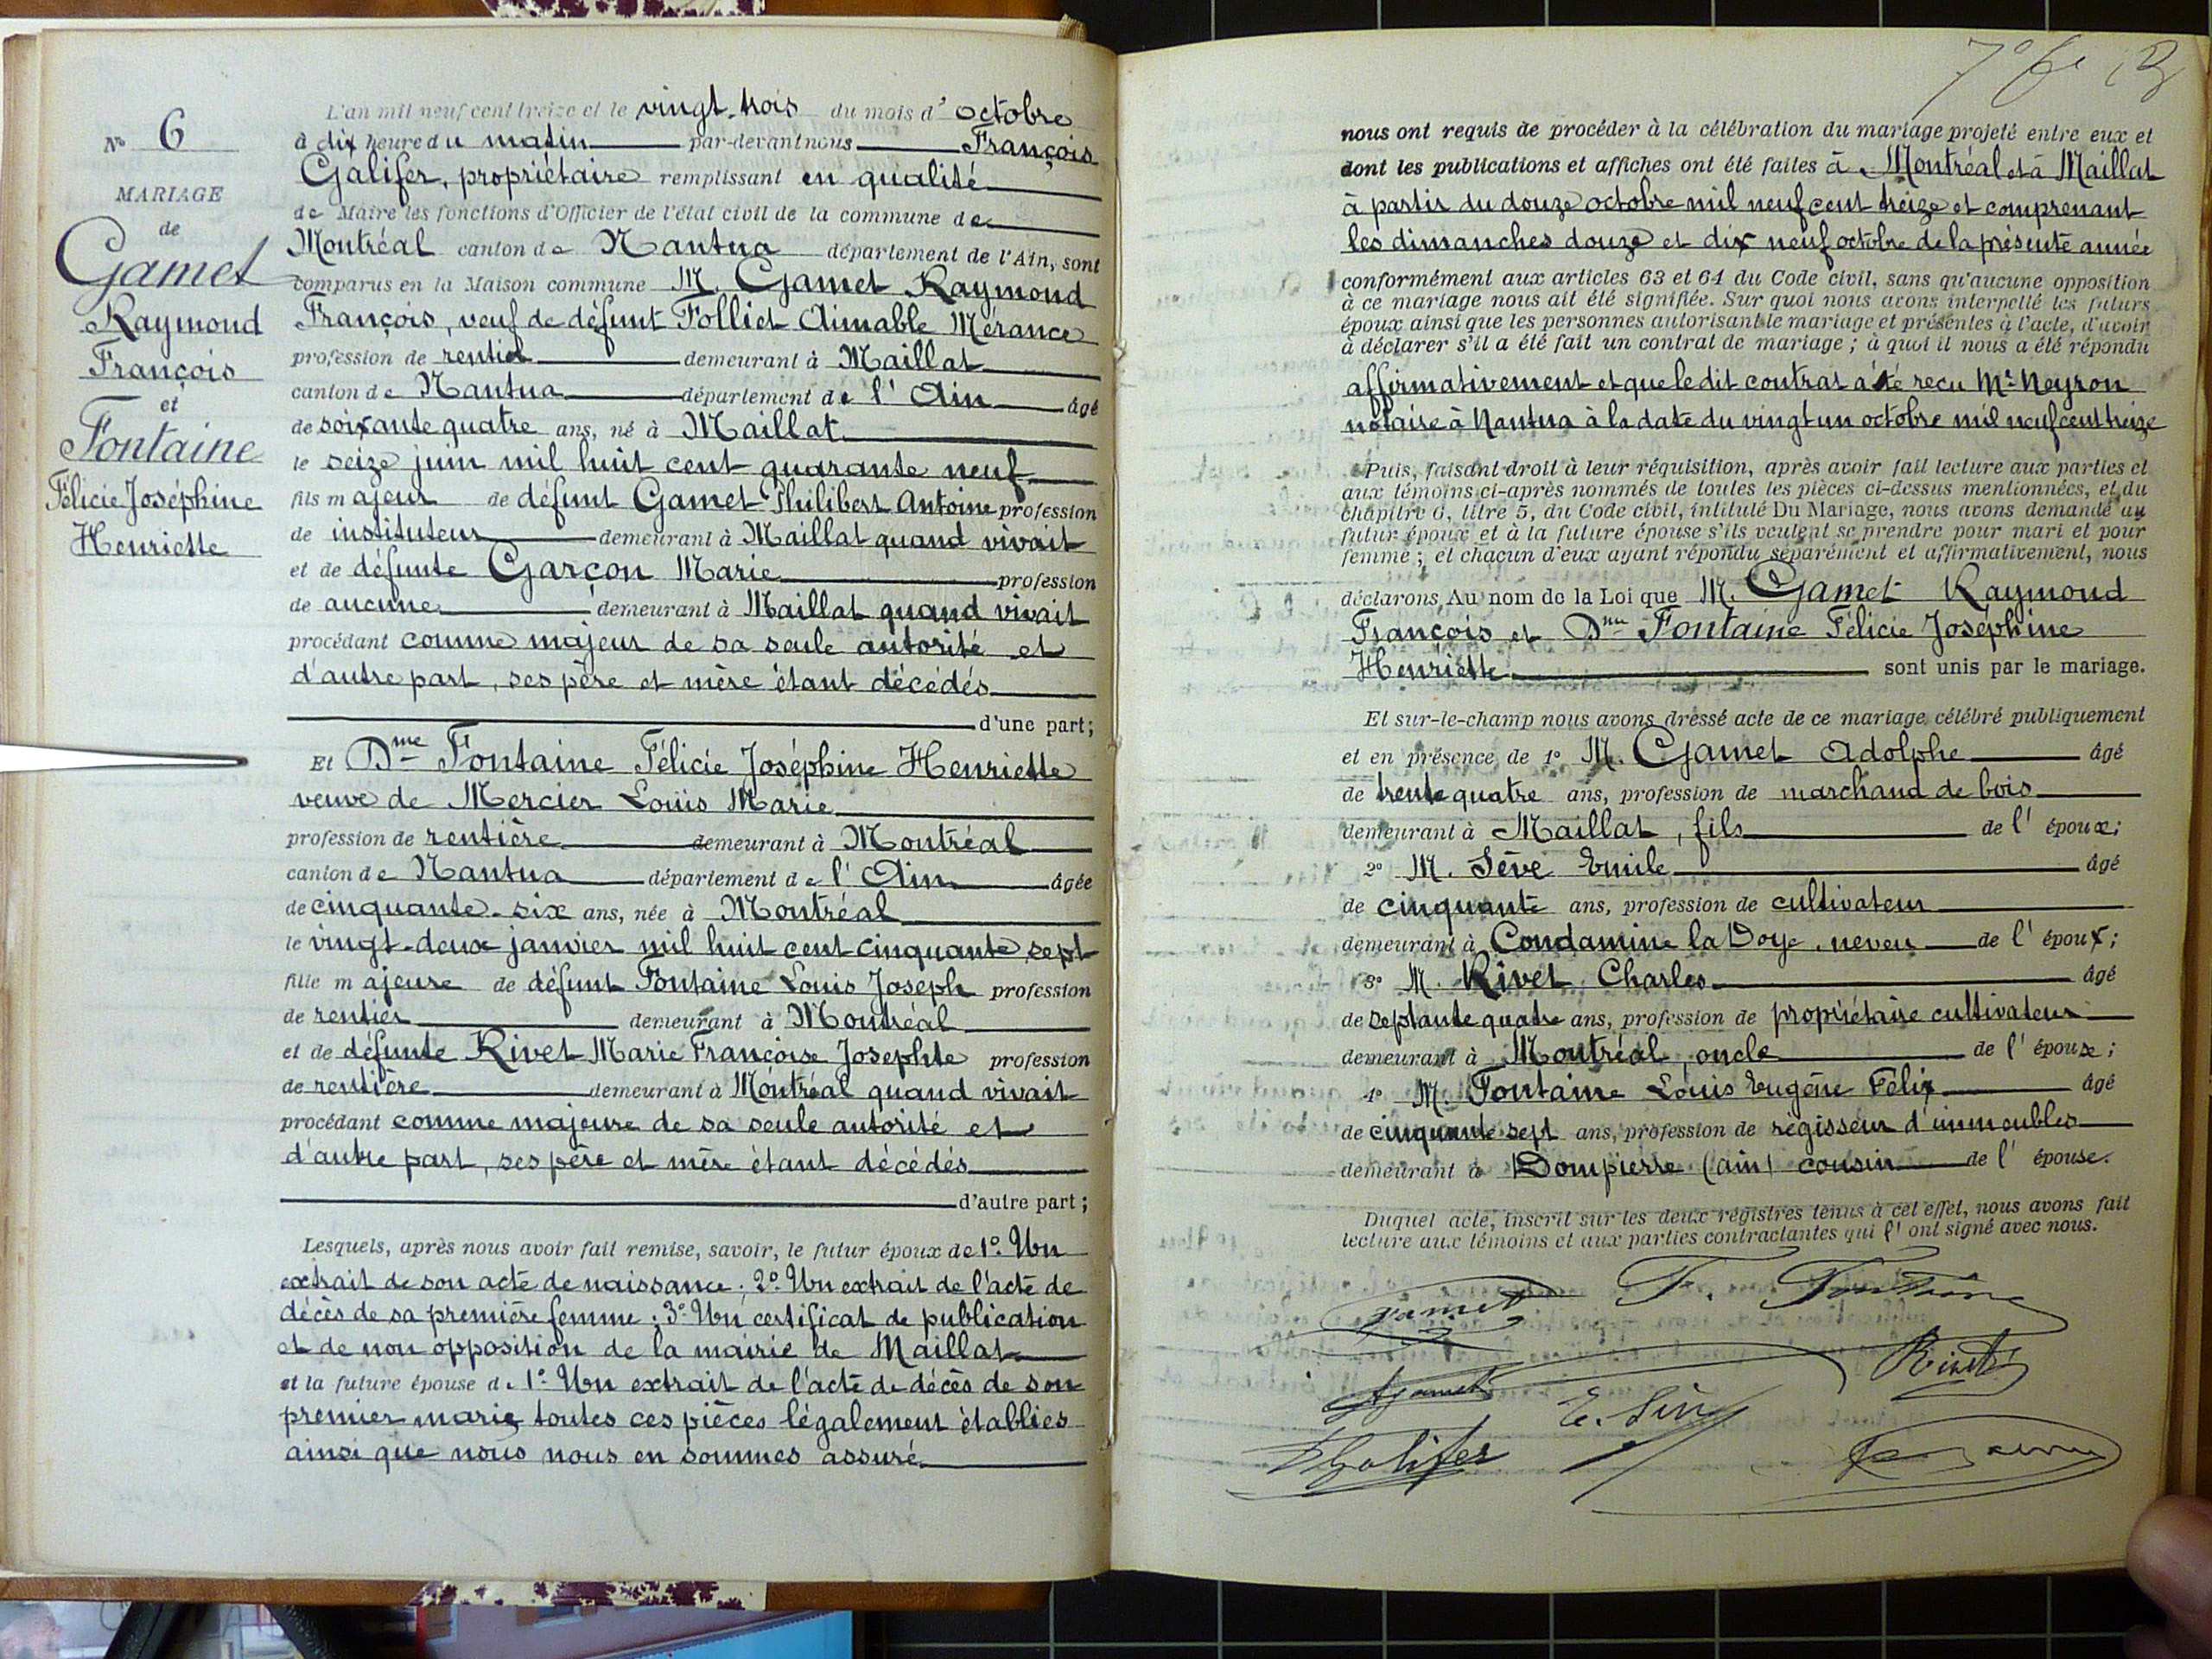 N° 6
MARIAGE
de
Gamet
Raymond
François
et
Fontaine
Félicie Joséphine
Henriette
L'an mil neuf cent treize et le vingt-trois du mois d'octobre
à dix heure du matin par-devant nous François
Galifer, propriétaire remplissant en qualité
de Maire les fonctions d'Officier de l'état civil de la commune de
Montréal canton de Nantua département de l'Ain, sont
comparus en la Maison commune M. Gamet Raymond
François, veuf de défunt Folliet Aimable Mérance
profession de rentier demeurant à Maillat
canton de Nantua département de l'Ain âgé
de soixante quatre ans, né à Maillat
le seize juin mil huit cent quarante neuf
fils majeur de défunt Gamet Philibert Antoine profession
de instituteur demeurant à Maillat quand vivait
et de défunte Garçon Marie profession
de aucune demeurant à Maillat quand vivait
procédant comme majeur de sa seule autorité et
d'autre part, ses père et mère étant décédés
d'une part;
Et Dme Fontaine Félicie Joséphine Henriette
veuve de Mercier Louis Marie
profession de rentière demeurant à Montréal
canton de Nantua département de l'Ain âgée
de cinquante-six ans, née à Montréal
le vingt-deux janvier mil huit cent cinquante sept
fille majeure de défunt Fontaine Louis Joseph profession
de rentier demeurant à Montréal
et de défunte Rivet Marie Françoise Josephte profession
de rentière demeurant à Montréal quand vivait
procédant comme majeure de sa seule autorité et
d'autre part, ses père et mère étant décédés
d'autre part;
Lesquels, après nous avoir fait remise, savoir, le futur époux de 1° Un
extrait de son acte de naissance; 2° Un extrait de l'acte de
décès de sa première femme; 3° Un certificat de publication
et de non opposition de la mairie de Maillat
et la future épouse de 1° Un extrait de l'acte de décès de son
premier marie toutes ces pièces légalement établies
ainsi que nous nous en sommes assuré.
nous ont requis de procéder à la célébration du mariage projeté entre eux et
dont les publications et affiches ont été faites à Montréal et à Maillat
à partir du douze octobre mil neuf cent treize et comprenant
les dimanches douze et dix neuf octobre de la présente année
conformément aux articles 63 et 64 du Code civil, sans qu'aucune opposition
à ce mariage nous ait été signifiée. Sur quoi nous avons interpellé les futurs
époux ainsi que les personnes autorisant le mariage et présentes à l'acte, d'avoir
à déclarer s'il a été fait un contrat de mariage; à quoi il nous a été répondu
affirmativement et que le dit contrat a été recu Me Neyron
notaire à Nantua à la date du vingt un octobre mil neuf cent treize
Puis, faisant droit à leur réquisition, après avoir fait lecture aux parties et
aux témoins ci-après nommés de toutes les pièces ci-dessus mentionnées, et du
chapitre 6, titre 5, du Code civil, intitulé Du Mariage, nous avons demandé au
futur époux et à la future épouse s'ils veulent se prendre pour mari et pour
femme; et chacun d'eux ayant répondu séparément et affirmativement, nous
déclarons Au nom de la Loi que M. Gamet Raymond
François et Dme Fontaine Félicie Joséphine
Henriette sont unis par le mariage.
Et sur-le-champ nous avons dressé acte de ce mariage célébré publiquement
et en présence de 1° M. Gamet Adolphe âgé
de trente quatre ans, profession de marchand de bois
demeurant à Maillat, fils de l'époux;
2° M. Sève Emile âgé
de cinquante ans, profession de cultivateur
demeurant à Condamine la Doye, neveu de l'époux;
3° M. Rivet Charles âgé
de septante quatre ans, profession de propriétaire cultivateur
demeurant à Montréal, oncle de l'épouse;
4° M. Fontaine Louis Eugène Félix âgé
de cinquante sept ans, profession de régisseur d'immeubles
demeurant à Dompierre (ain) cousin de l'épouse.
Duquel acte, inscrit sur les deux régistres tenus à cet effet, nous avons fait
lecture aux témoins et aux parties contractantes qui l'ont signé avec nous.
Gamet F. Fontaine
AGamet E. Sève Rivet
F Galifer